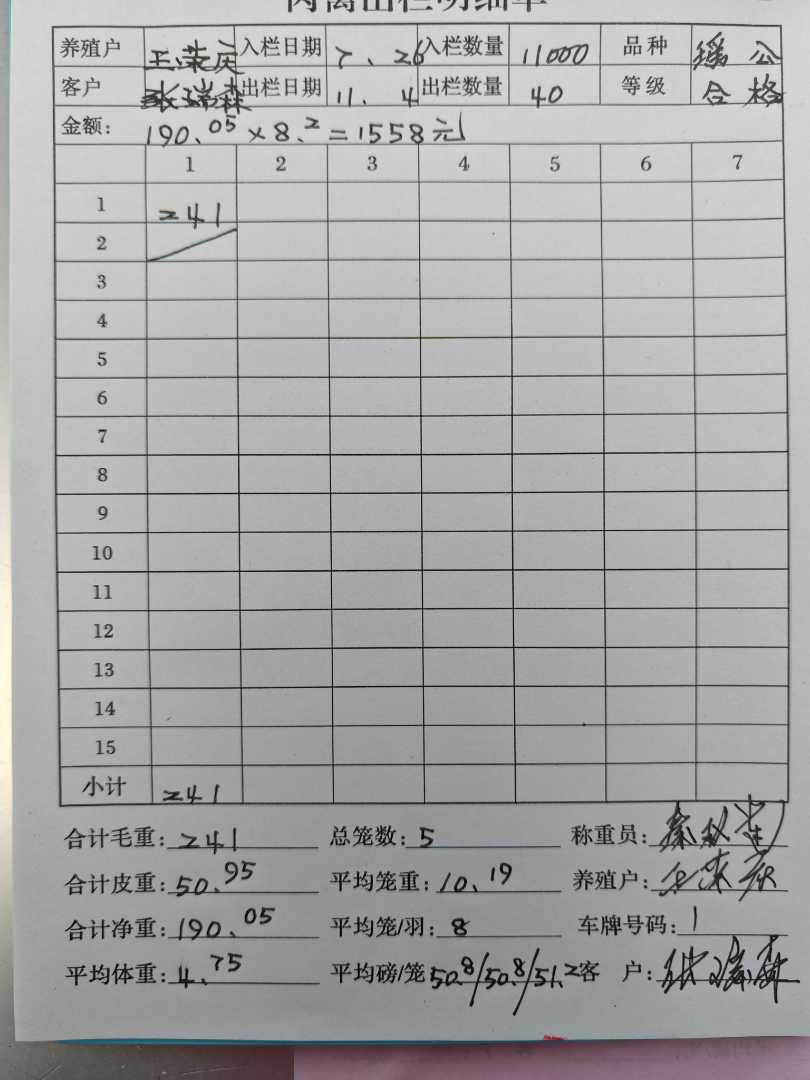 肉禽出栏明细单
养殖户 王荣庆 入栏日期 7、26 入栏数量 11000 品种 瑶公
客户 张瑞森 出栏日期 11、4 出栏数量 40 等级 合格
金额: 190.05×8.2=1558元
1 2 3 4 5 6 7
1 241
2
3
4
5
6
7
8
9
10
11
12
13
14
15
小计 241
合计毛重: 241 总笼数: 5 称重员:
合计皮重: 50.95 平均笼重: 10.19 养殖户: 王荣庆
合计净重: 190.05 平均笼/羽: 8 车牌号码: 1
平均体重: 4.75 平均磅/笼 50.8/50.8/51.2 客 户: 张瑞森